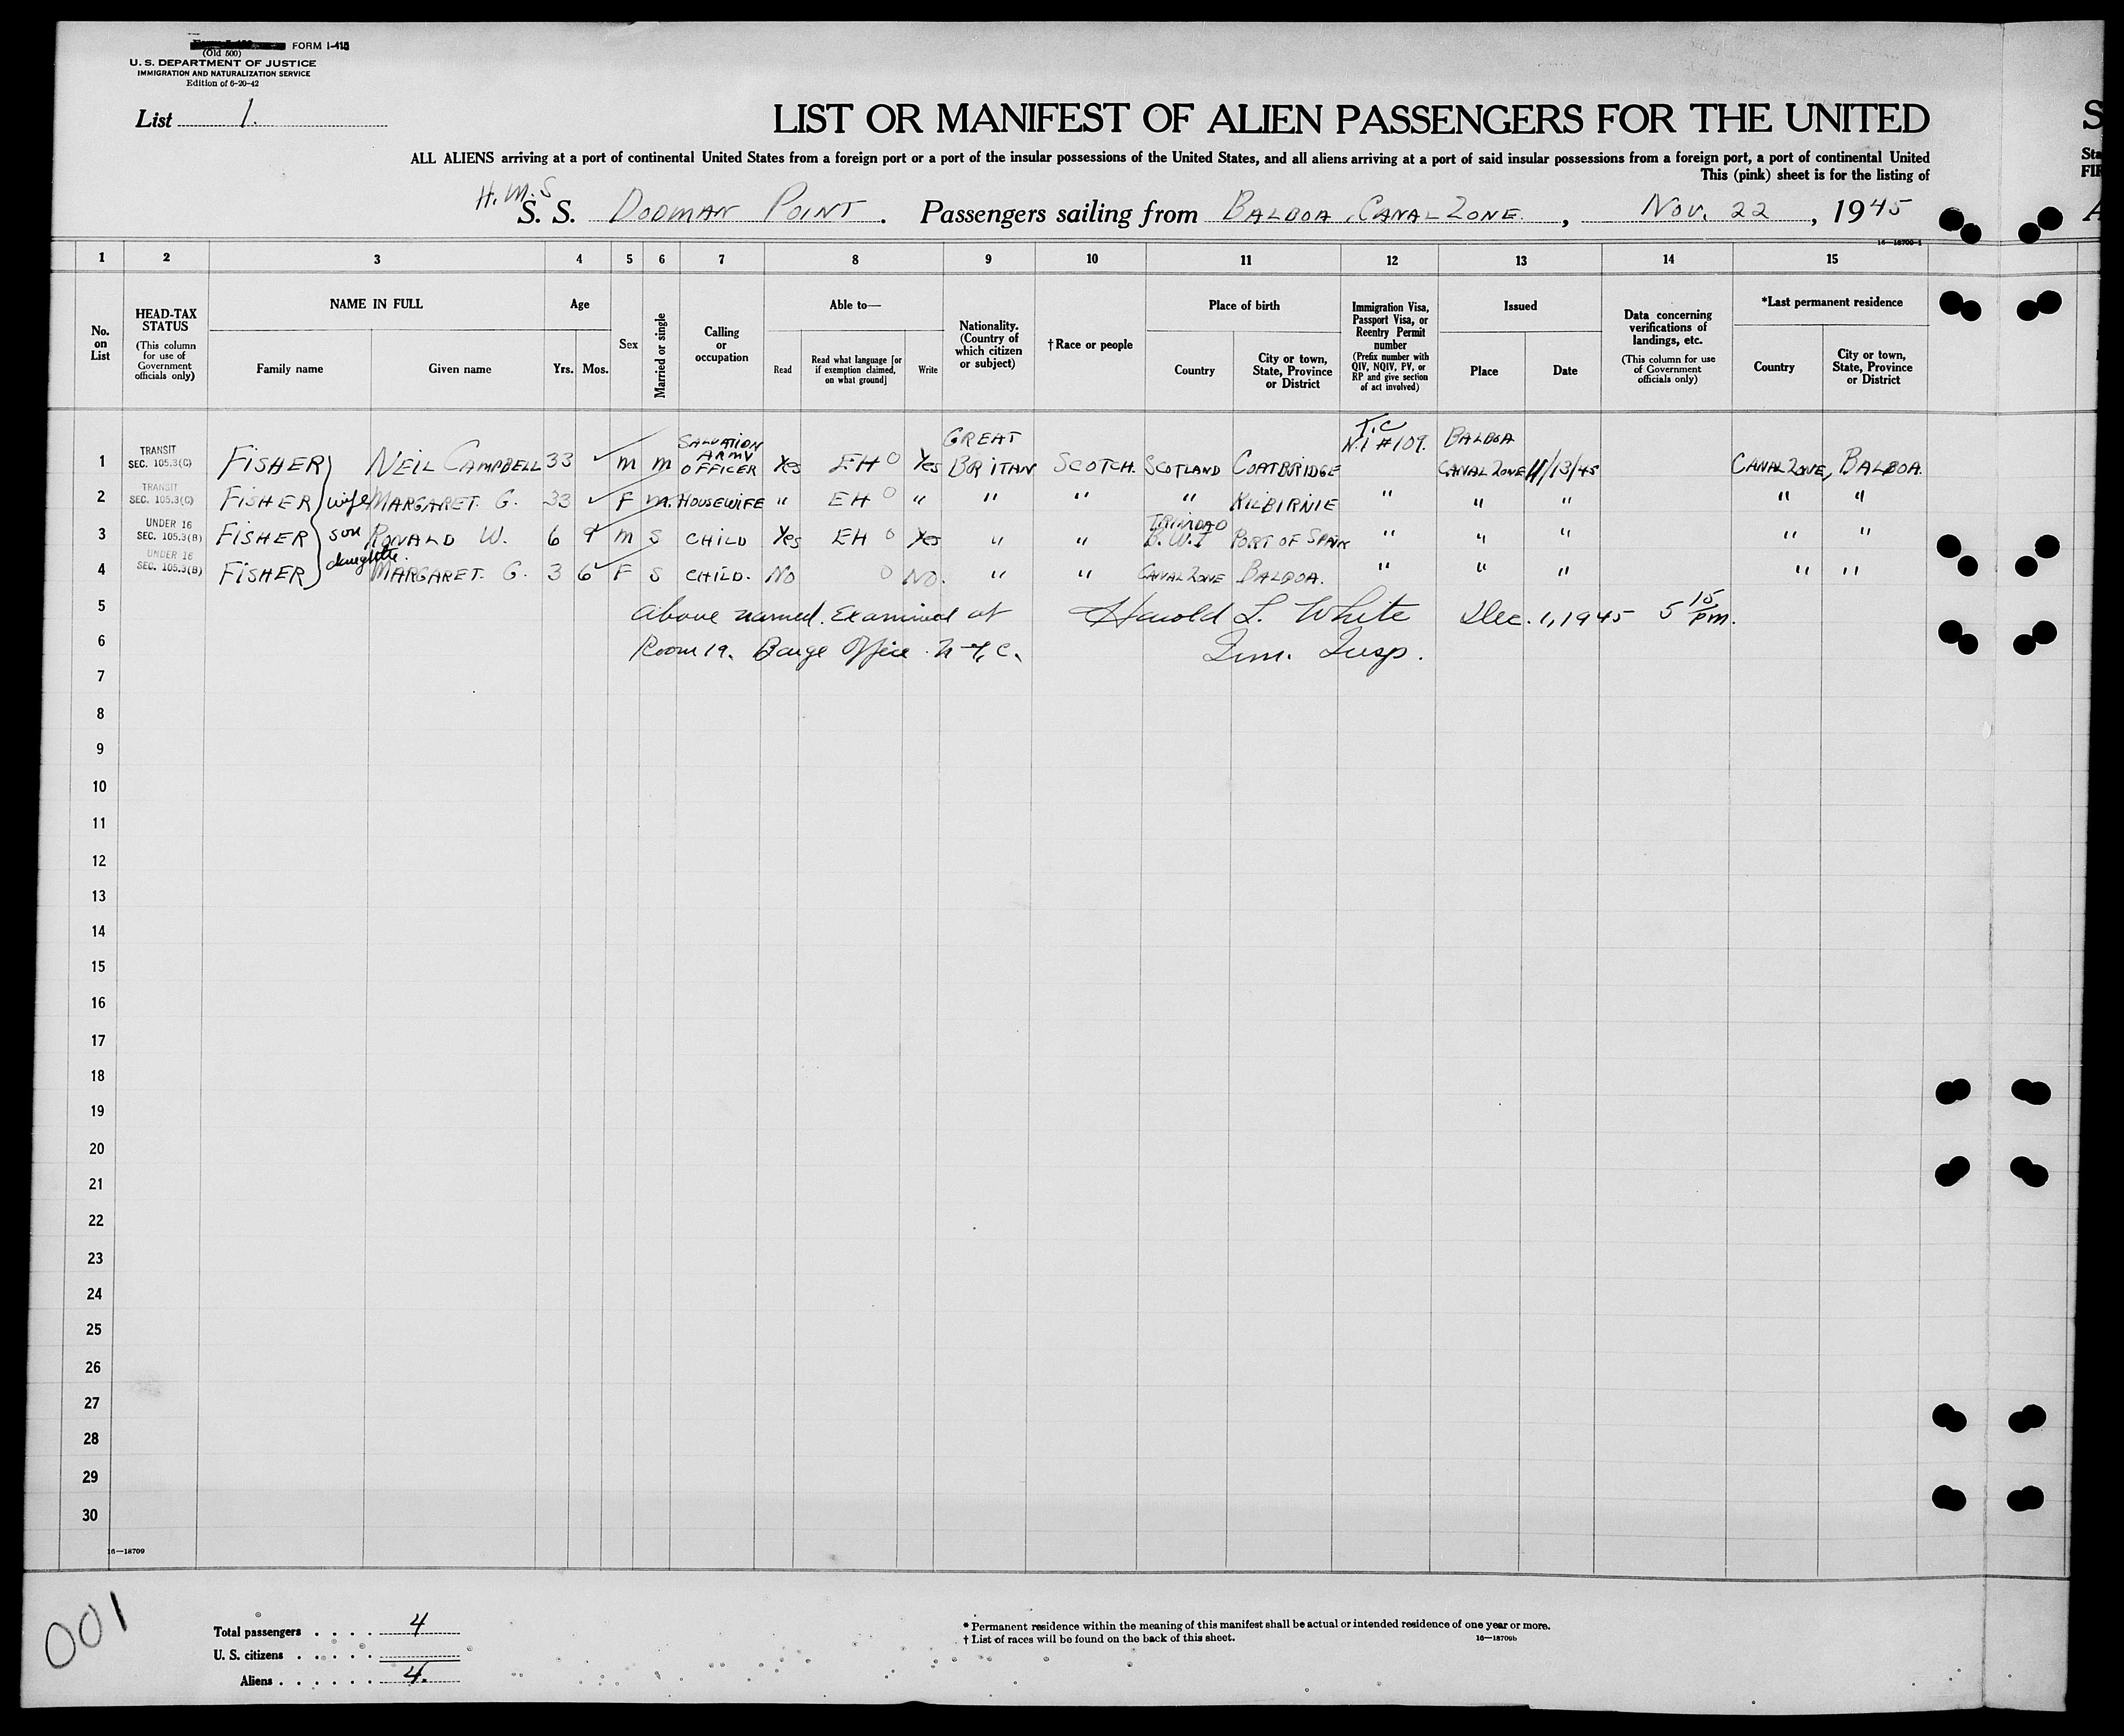 FORM I-415
(Old 500)
U. S. DEPARTMENT OF JUSTICE
IMMIGRATION AND NATURALIZATION SERVICE
Edition of 6-20-42
List 1.
LIST OR MANIFEST OF ALIEN PASSENGERS FOR THE UNITED
ALL ALIENS arriving at a port of continental United States from a foreign port or a port of the insular possessions of the United States, and all aliens arriving at a port of said insular possessions from a foreign port, a port of continental United
This (pink) sheet is for the listing of
H.M.S
S. S. DODMAN POINT. Passengers sailing from BALBOA, CANAL ZONE, NOV. 22, 1945
1 2 3 4 5 6 7 8 9 10 11 12 13 14 15
No. on List
HEAD-TAX STATUS
(This column for use of Government officials only)
NAME IN FULL
Family name
Given name
Age
Yrs. Mos.
Sex
Married or single
Calling or occupation
Able to—
Read
Read what language [or if exemption claimed, on what ground]
Write
Nationality. (Country of which citizen or subject)
†Race or people
Place of birth
Country
City or town, State, Province or District
Immigration Visa, Passport Visa, or Reentry Permit number
(Prefix number with QIV, NQIV, PV, or RP and give section of act involved)
Issued
Place
Date
Data concerning verifications of landings, etc.
(This column for use of Government officials only)
*Last permanent residence
Country
City or town, State, Province or District
1 TRANSIT SEC. 105.3(C) FISHER NEIL CAMPBELL 33 M M SALVATION ARMY OFFICER Yes EH Yes GREAT BRITAN SCOTCH. SCOTLAND COATBRIDGE T.C #109. BALBOA CANAL ZONE 11/13/45 CANAL ZONE, BALBOA.
2 TRANSIT SEC. 105.3(C) FISHER wife MARGARET. G. 33 F M. HOUSEWIFE " EH " " " " KILBIRNIE " " " " "
3 UNDER 16 SEC. 105.3(B) FISHER son RONALD W. 6 9 M S CHILD Yes EH Yes " " TRINIDAD B.W.I PORT OF SPAIN " " " " "
4 UNDER 16 SEC. 105.3(B) FISHER daughter. MARGARET. G. 3 6 F S CHILD. NO NO. " " CANAL ZONE BALBOA. " " " " "
5 Above named Examined at Harold L. White Dec. 1, 1945 5 15 pm.
6 Room 19. Barge Office N.Y.C. Imm. Insp.
7
8
9
10
11
12
13
14
15
16
17
18
19
20
21
22
23
24
25
26
27
28
29
30
16—18709
001
Total passengers . . . . 4
U. S. citizens . . . . .
Aliens . . . . . . 4.
* Permanent residence within the meaning of this manifest shall be actual or intended residence of one year or more.
† List of races will be found on the back of this sheet.
16—18709b